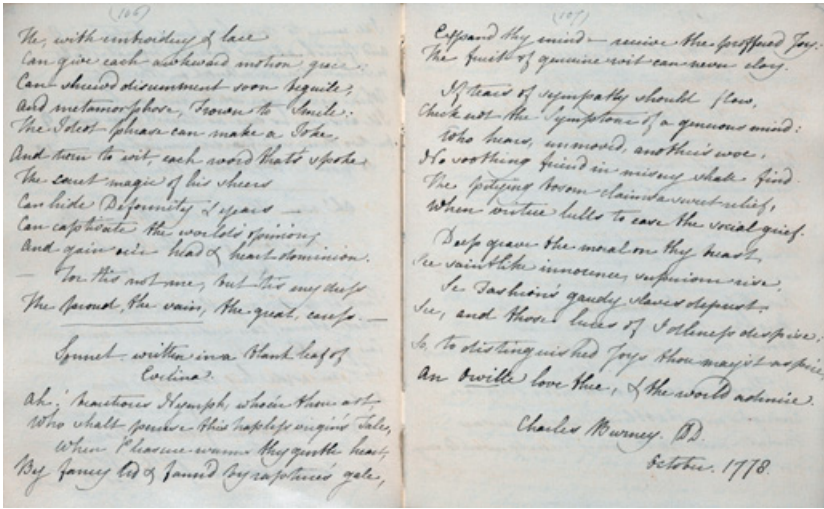 (106)
He, with embroidery & lace
Can give each awkward motion grace
Can shrewd discernment soon beguile,
And metamorphose, Frown to Smile:
The Ideot phrase can make a Joke,
And turn to wit, each word that's spoke
The secret magic of his sheers
Can hide Deformity & years —
Can captivate the world's opinion,
And gain o'er head & heart dominion.
— For tis not me, but 'tis my dress
The proud, the vain, the great, caress. —
Sonnet written in a blank leaf of
Evelina.
Ah! beauteous Nymph, whoe'er thou art
Who shalt peruse this hapless virgin's Tale,
When Pleasure warms thy gentle heart,
By fancy led & fann'd by rapture's gale,
(107)
Expand thy mind — receive the proffered Joy:
The fruit of genuine wit can never cloy.
If tears of sympathy should flow,
Check not the Symptoms of a generous mind:
Who hears, unmoved, another's woe,
No soothing friend in misery shall find.
The pitying bosom claims a sweet relief,
When virtue lulls to ease the social grief.
Deep grave the moral on thy breast
See saintlike innocence, superior rise,
See Fashion's gaudy slaves deprest.
See, and those lures of Idleness despise:
So, to distinguished Joys thou mayst aspire,
An Orville love thee, & the world admire.
Charles Burney. DD.
October. 1778.